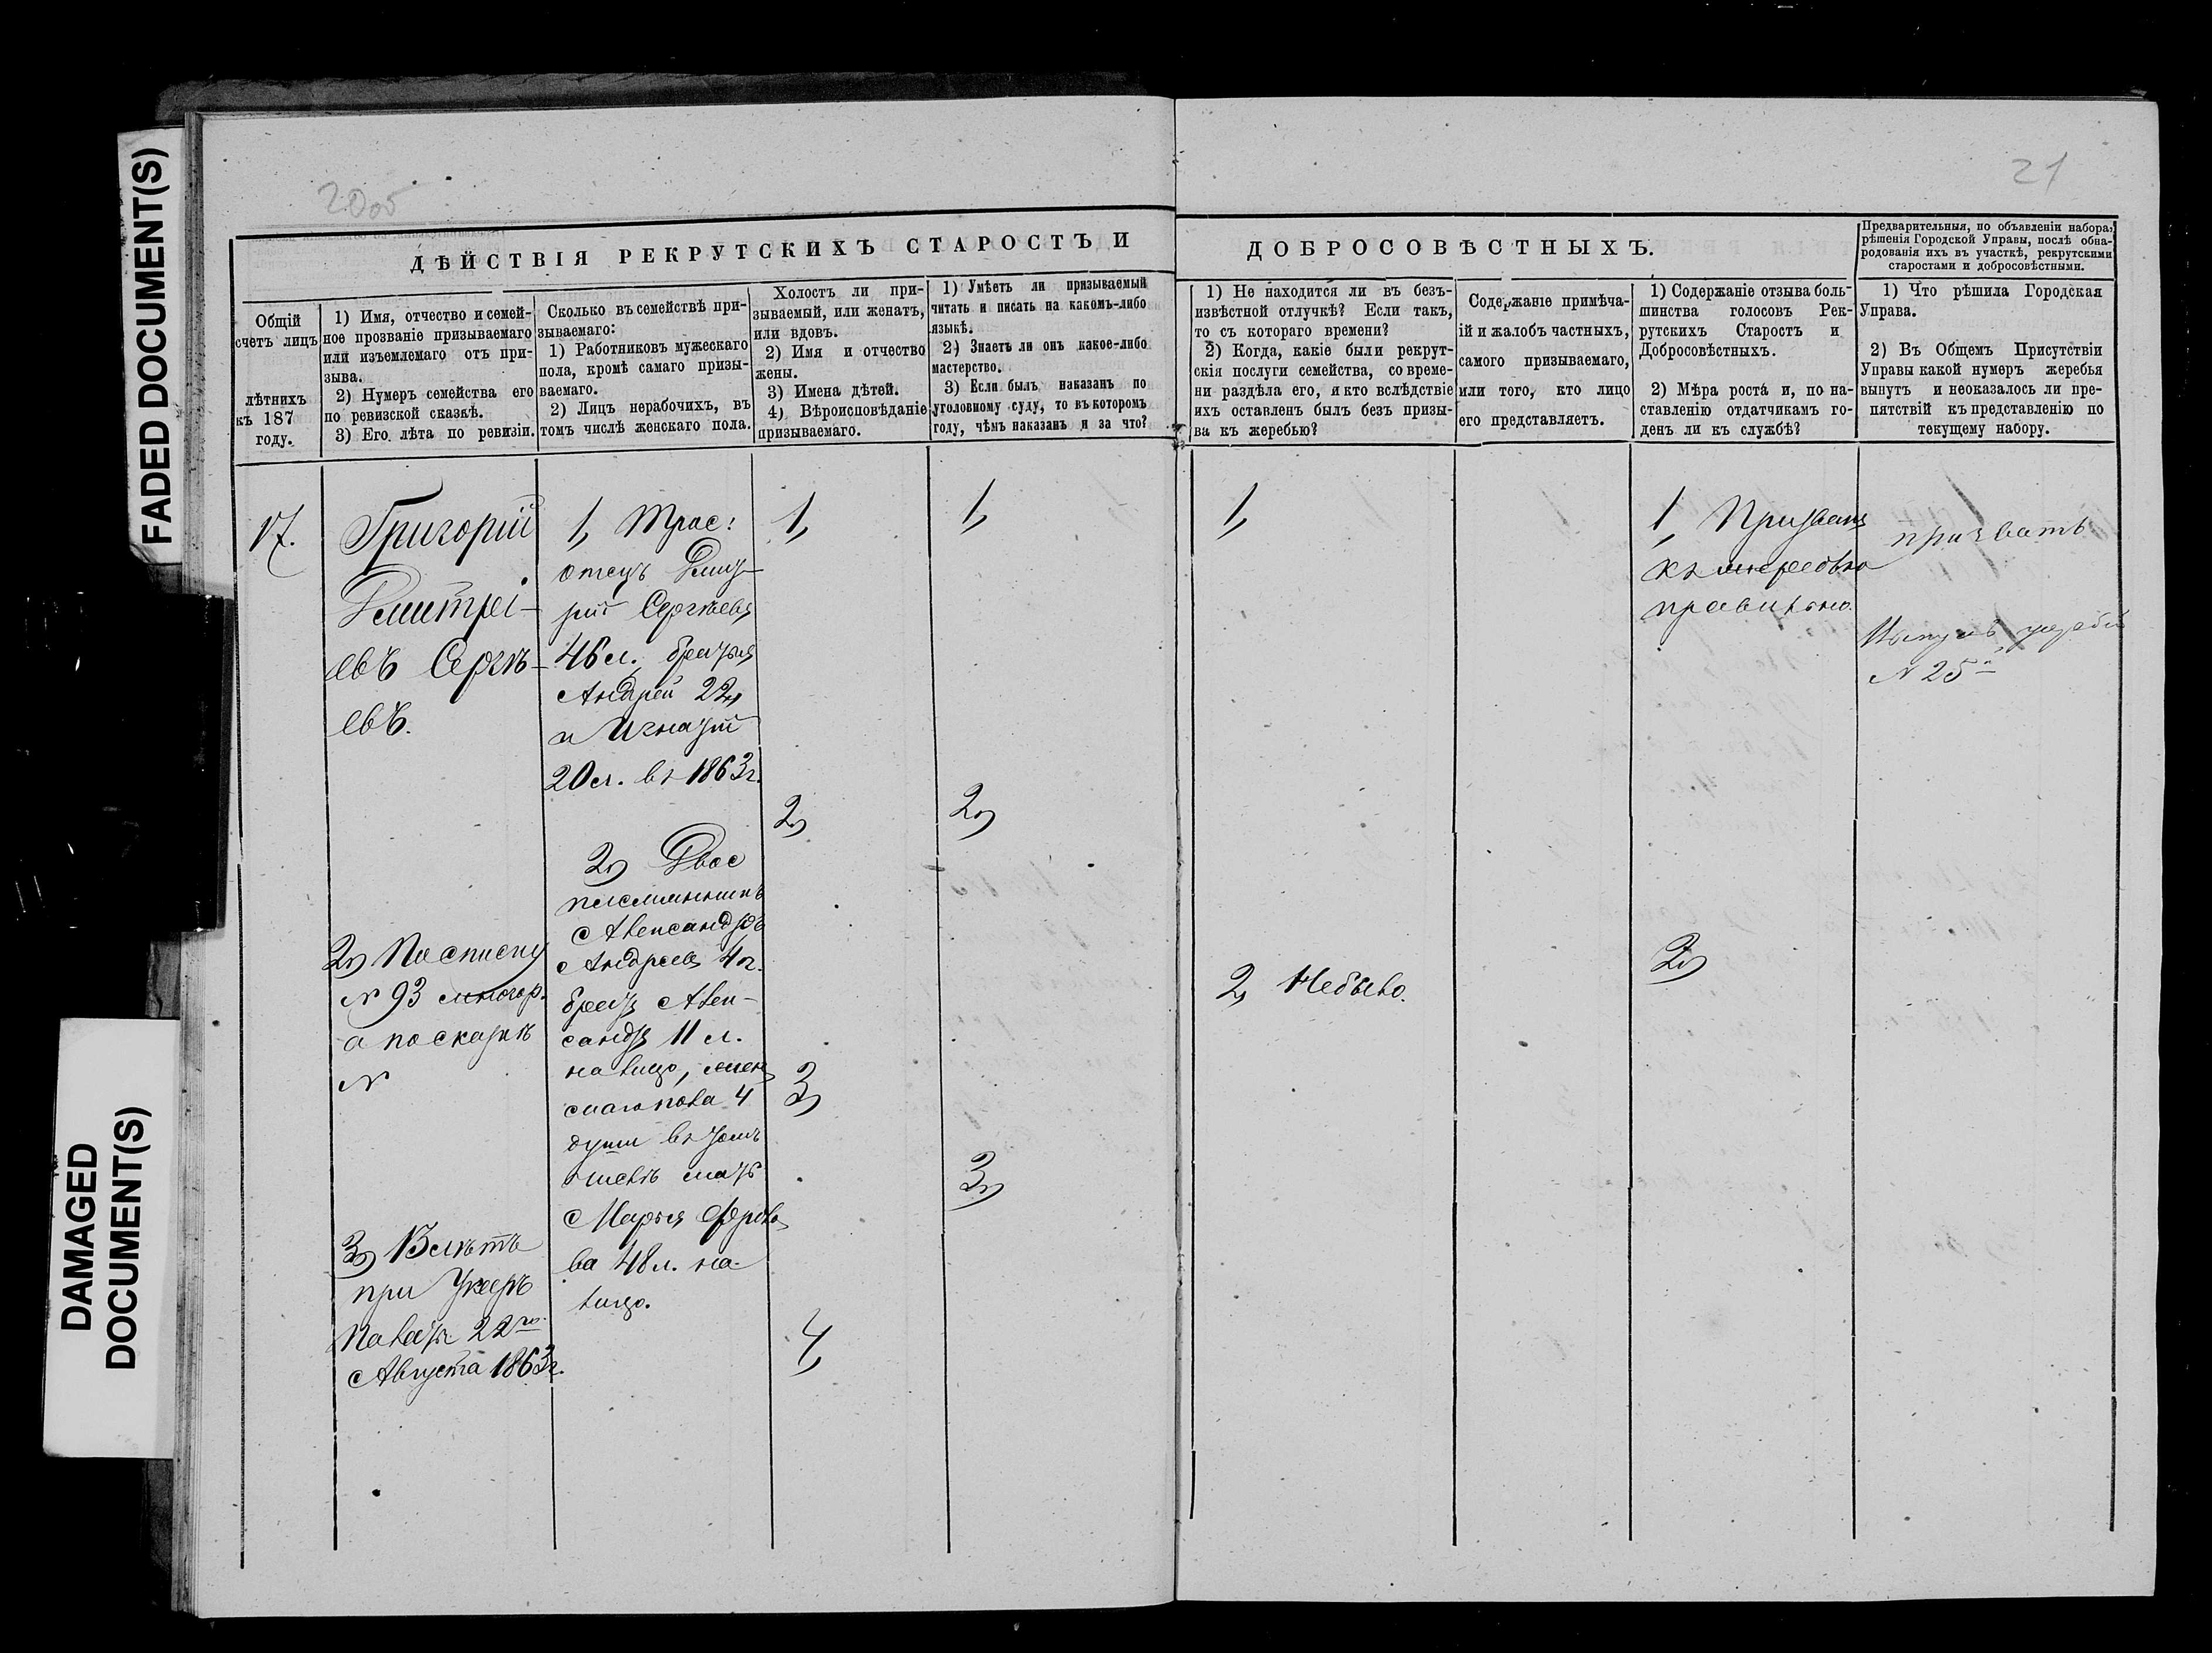 FADED DOCUMENT(S)
DAMAGED
DOCUMENT(S)
21
ДѢЙСТВІЯ РЕКРУТСКИХЪ СТАРОСТЪ И
Общій
счетъ лицъ
лѣтнихъ
къ 187
году.
1) Имя, отчество и семей-
ное прозваніе призываемаго
или изъемлемаго отъ при-
зыва.
2) Нумеръ семейства его
по ревизской сказкѣ.
3) Его лѣта по ревизіи.
Сколько въ семействѣ при-
зываемаго:
1) Работниковъ мужескаго
пола, кромѣ самаго призы-
ваемаго.
2) Лицъ нерабочихъ, въ
томъ числѣ женскаго пола.
Холостъ ли при-
зываемый, или женатъ,
или вдовъ.
2) Имя и отчество
жены.
3) Имена дѣтей.
4) Вѣроисповѣданіе
призываемаго.
1) Умѣетъ ли призываемый
читать и писать на какомъ-либо
языкѣ.
2) Знаетъ ли онъ какое-либо
мастерство.
3) Если былъ наказанъ по
уголовному суду, то въ которомъ
году, чѣмъ наказанъ и за что?
17.
Григорій
Дмитрі-
евъ Сергѣ-
евъ.
2) По списку
№ 93
а по сказкѣ
№
3) Влѣтъ
при
22го
Августа 1863г.
1, Трое:
отецъ Дмит-
рій Сергѣевъ
46 л. братья
Андрей 22
и Игнатій
20 л. въ 1863г.
2) Двое
племянникъ
Александръ
Андреевъ 4 г.
братъ Алек-
сандръ 11 л.
налицо, жен-
скаго пола 4
души въ томъ
числѣ мать
Марья
48 л. на-
лицо.
1,
2)
3)
4,
1,
2)
3)
ДОБРОСОВѢСТНЫХЪ.
1) Не находится ли въ безъ-
извѣстной отлучкѣ? Если такъ,
то съ котораго времени?
2) Когда, какіе были рекрут-
скія послуги семейства, со време-
ни раздѣла его, и кто вслѣдствіе
ихъ оставленъ былъ безъ призы-
ва къ жеребью?
Содержаніе примѣча-
ій и жалобъ частныхъ,
самого призываемаго,
или того, кто лицо
его представляетъ.
1) Содержаніе отзыва боль-
шинства голосовъ Рек-
рутскихъ Старостъ и
Добросовѣстныхъ.
2) Мѣра роста и, по на-
ставленію отдатчикамъ го-
денъ ли къ службѣ?
Предварительныя, по объявленіи набора,
рѣшенія Городской Управы, послѣ обна-
родованія ихъ въ участкѣ, рекрутскими
старостами и добросовѣстными.
1) Что рѣшила Городская
Управа.
2) Въ Общемъ Присутствіи
Управы какой нумеръ жеребья
вынутъ и неоказалось ли пре-
пятствій къ представленію по
текущему набору.
1,
2, Небыло.
1, Призванъ
правильно.
2)
призвать
№ 25й